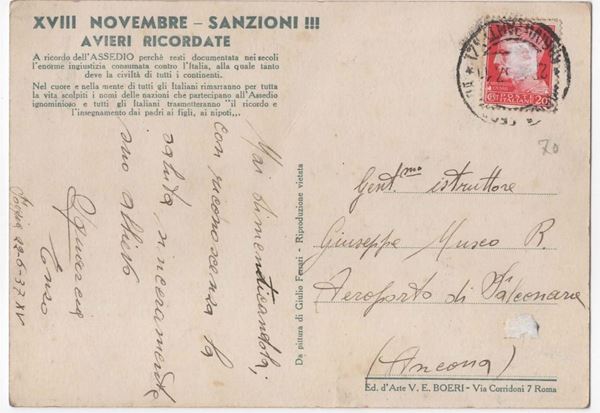 XVIII NOVEMBRE – SANZIONI !!!
AVIERI RICORDATE
A ricordo dell'ASSEDIO perchè resti documentata nei secoli
l'enorme ingiustizia consumata contro l'Italia, alla quale tanto
deve la civiltà di tutti i continenti.
Nel cuore e nella mente di tutti gli Italiani rimarranno per tutta
la vita scolpiti i nomi delle nazioni che partecipano all'Assedio
ignominioso e tutti gli Italiani trasmetteranno "il ricordo e
l'insegnamento dai padri ai figli, ai nipoti„.
Mai dimenticandola,
con riconoscenza la
saluta sinceramente
suo allievo
Enzo
22-6-37 XV
Da pittura di Giulio Ferrari - Riproduzione vietata
POSTE ITALIANE
20
70
Gent.mo istruttore
Giuseppe Museo R.
Aeroporto di Falconara
(Ancona)
Ed. d'Arte V. E. BOERI - Via Corridoni 7 Roma